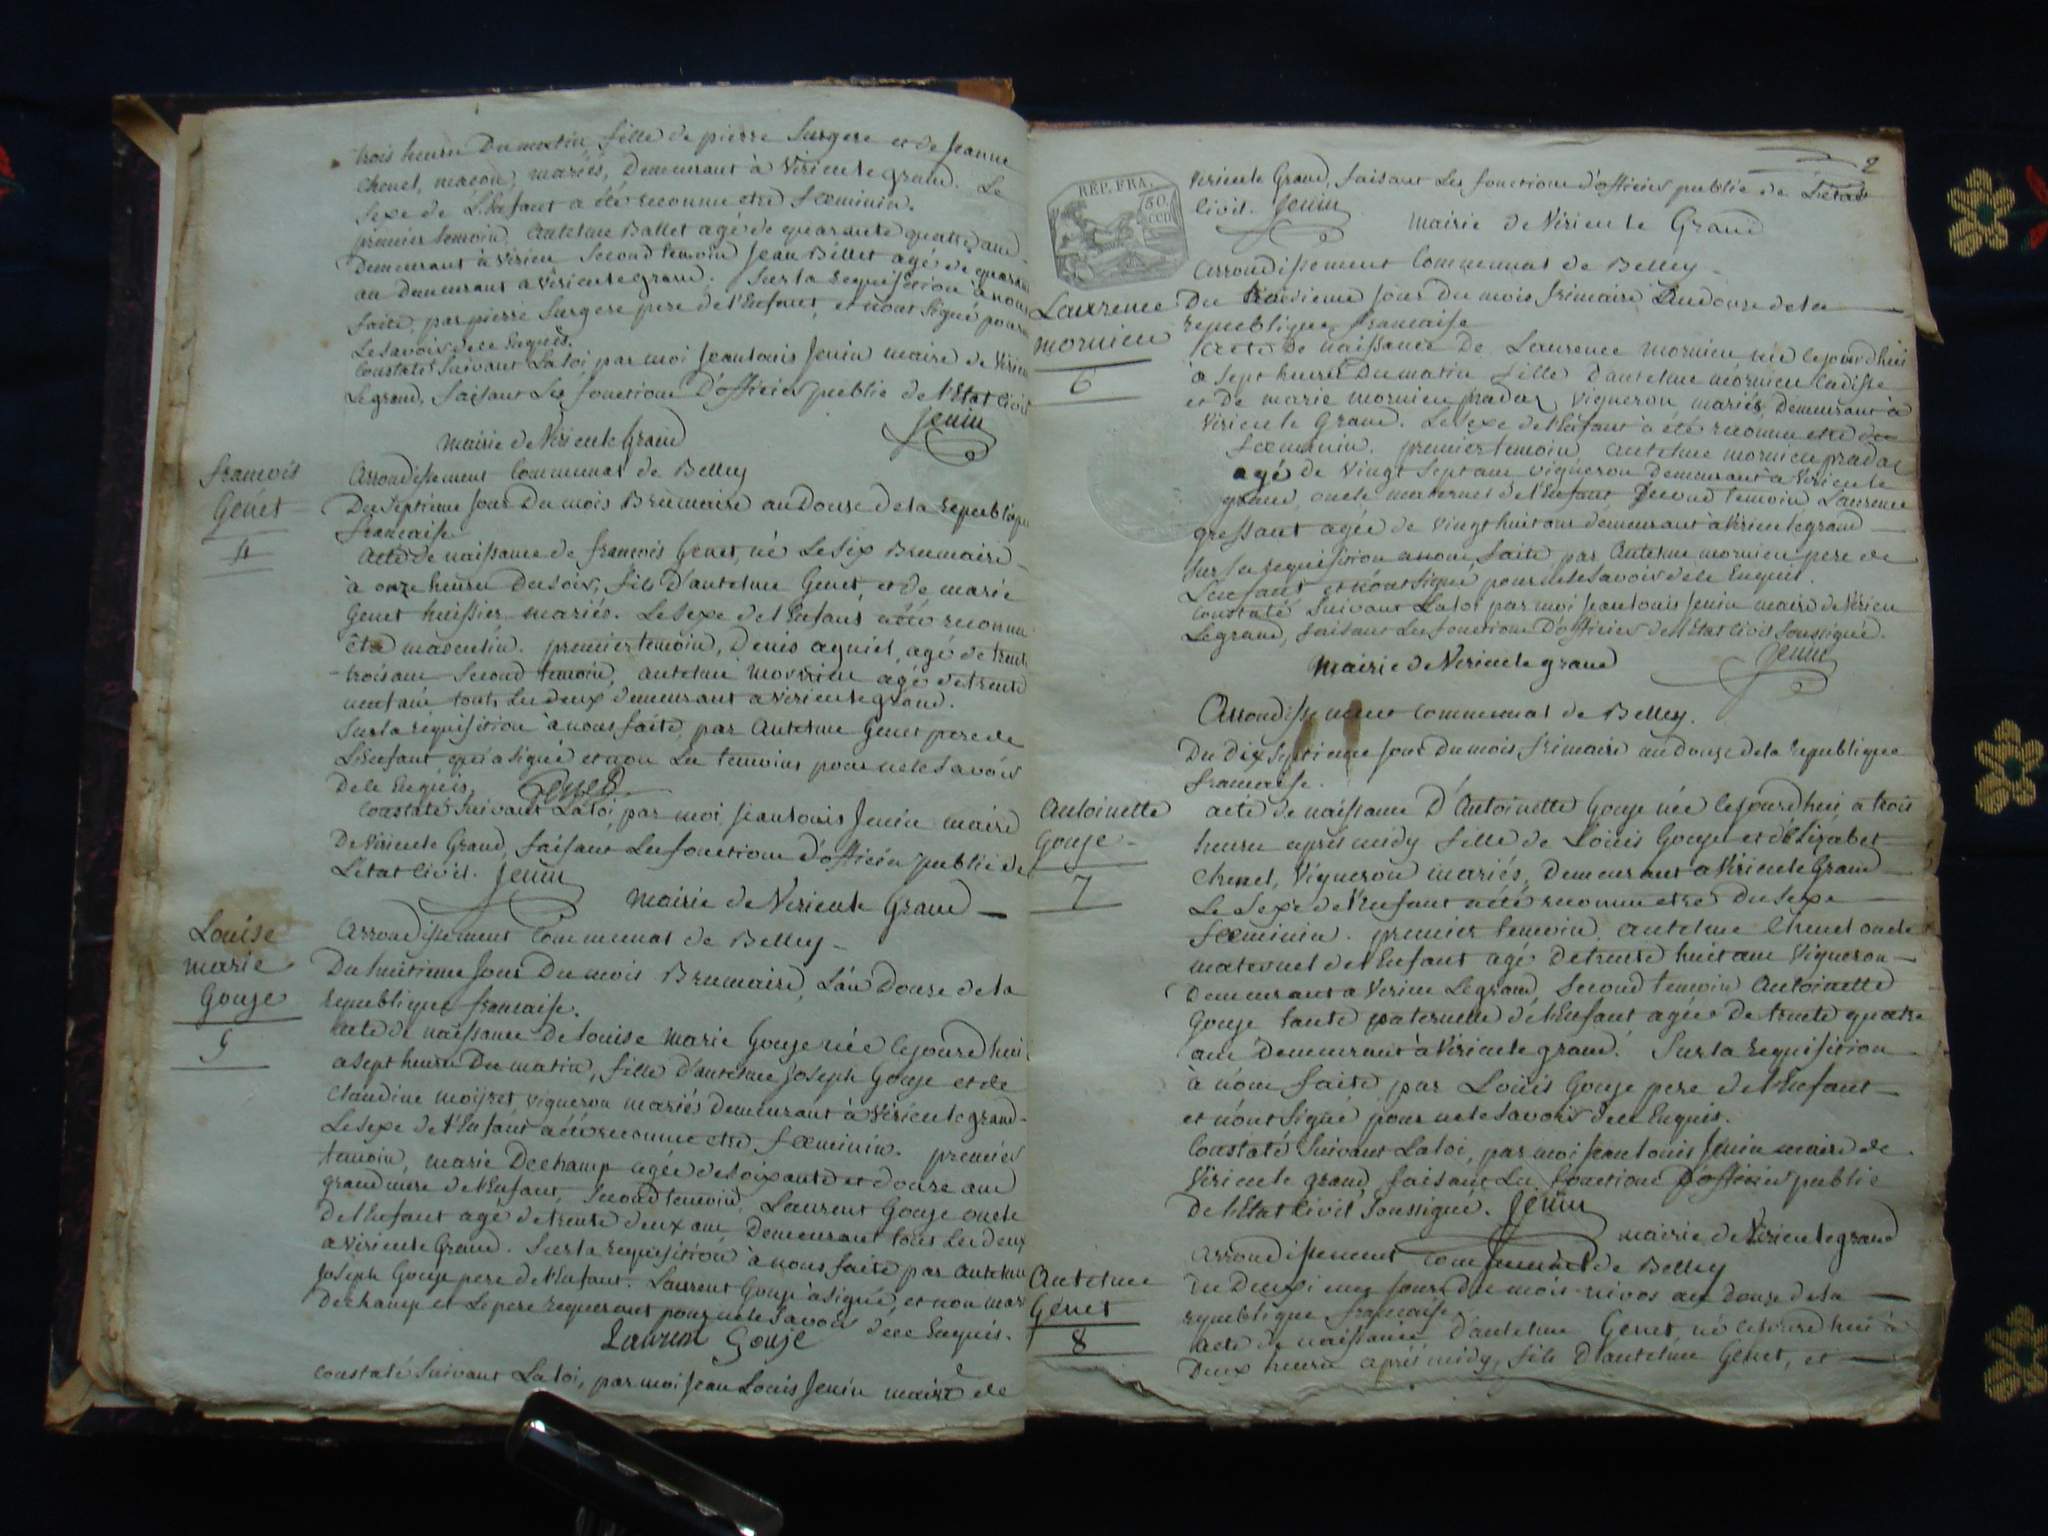 trois heures Du matin, fille de pierre Surgere et de Jeanne
Chenel, maçon, mariés, Demeurant à Virieu le grand. Le
Sexe de L'Enfant a été reconnu etre Fœminin.
premier temoin, Antelme Ballet agé de quarante quatre ans
Demeurant à Virieu Second temoin Jean Billet agé de
an Demeurant a Virieu le grand. Sur la requisition à nous
faite, par pierre Surgere pere de l'Enfant, et n'ont Signé pour
Le Savoir de ce Enquis.
Constaté Suivant La loi par moi Jean louis Jenin maire de Virieu
Le grand, faisant Les fonctions D'officier public de l'Etat Civil
Jenin
Mairie de Virieu le Grand
françois
Genet
4
Arrondissement Communal de Belley
Du Septieme Jour Du mois Brumaire an Douze de la Republique
française
Acte de naissance de françois Genet, né Le Six Brumaire
à onze heures Du Soir, fils D'antelme Genet, et de marie
Genet huissier mariés. Le Sexe de l'Enfant a été reconnu
être masculin. premier temoin, Denis agniel, agé de trente
trois ans Second temoin, antelme mornieu agé de trente
neuf ans, touts Les deux demeurant a Virieu le grand.
Sur la requisition à nous faite, par Antelme Genet pere de
L'Enfant qui a Signé et non Les temoins pour ne le Savoir
De ce Enquis. Genet
Constaté Suivant La loi par moi Jean louis Jenin maire
De Virieu le Grand, faisant Les fonctions d'officier public de
L'Etat Civil. Jenin
Mairie de Virieu le Grand
Louise
marie
Gouje
5
Arrondissement Communal de Belley
Du huitieme Jour Du mois Brumaire, L'an Douze de la
republique française.
Acte de naissance De louise Marie Gouje née Cejourd'hui
a Sept heures Du matin, fille d'antelme Joseph Gouje et de
Claudine moyret vigneron mariés Demeurant à Virieu le grand
Le Sexe de l'Enfant a été reconnu etre Fœminin. premier
temoin, marie Dechamp agée de Soixante et douze ans
grand mere de l'Enfant, Second temoin, Laurent Gouje oncle
De l'Enfant agé de trente deux ans, Demeurant tous Les deux
a Virieu le Grand. Sur la requisition à nous faite par antelme
Joseph Gouje pere de l'Enfant. Laurent Gouje a Signé, et non marie
Dechamp et Le pere requerant pour ne le Savoir de ce Enquis.
Lauren Gouje
Constaté Suivant La loi, par moi Jean Louis Jenin maire de
2
REP. FRA.
50.
CEN
Virieu le Grand, faisant Les fonctions d'officier public de L'etat
Civil. Jenin
Mairie de Virieu le Grand
Arrondissement Communal de Belley
Laurence
mornieu
6
Du troisieme Jour Du mois frimaire An douze de la
republique française
Acte de naissance De Laurence mornieu née Cejourd'hui
à Sept heures Du matin fille D'antelme mornieu Cadisse
et De marie mornieu pradas, vigneron mariés Demeurant a
Virieu le Grand. Le Sexe de l'Enfant a été reconnu etre de
Fœminin. premier temoin, antelme mornieu pradas
agé de vingt Sept ans vigneron Demeurant à Virieu le
grand oncle maternel de l'Enfant Second temoin Laurence
gressant agée de vingt huit ans demeurant à Virieu le grand
Sur la requisition a nous, faite par Antelme mornieu pere de
L'enfant et n'ont Signé pour ne le Savoir de ce Enquis.
Constaté Suivant La loi par moi Jean louis Jenin maire de Virieu
Le grand, faisant Les fonctions D'officier de l'Etat Civil Soussigné.
Jenin
Mairie de Virieu le grand
Arrondissement Communal de Belley.
Du Dix Septieme Jour Du mois frimaire an douze de la republique
française.
Antoinette
Gouje
7
acte de naissance D'Antoinette Gouje née Cejourd'hui, à trois
heures après midy fille de Louis Gouje et d'Elizabet
Chenel, Vigneron mariés, Demeurant a Virieu le Grand
Le Sexe de l'Enfant a été reconnu etre Du Sexe
Fœminin. premier temoin. antelme Chenel oncle
maternel de l'Enfant agé De trente huit ans Vigneron
Demeurant a Virieu Le grand, Second temoin Antoinette
Gouje tante paternelle de l'Enfant agée De trente quatre
ans Demeurant à Virieu le grand. Sur la requisition
à nous faite par Louis Gouje pere de l'Enfant
et n'ont Signé pour ne le Savoir de ce Enquis.
Constaté Suivant La loi, par moi Jean louis Jenin maire de
Virieu le grand, faisant Les fonctions D'officier public
De l'Etat Civil Soussigné. Jenin
Mairie de Virieu le grand
Arrondissement Communal de Belley
Antelme
Genet
8
Du Deuxieme Jour Du mois nivos an Douze de la
republique française
Acte de naissance d'antelme Genet, né Cejourd'hui à
Deux heures après midy, fils D'antelme Genet, et